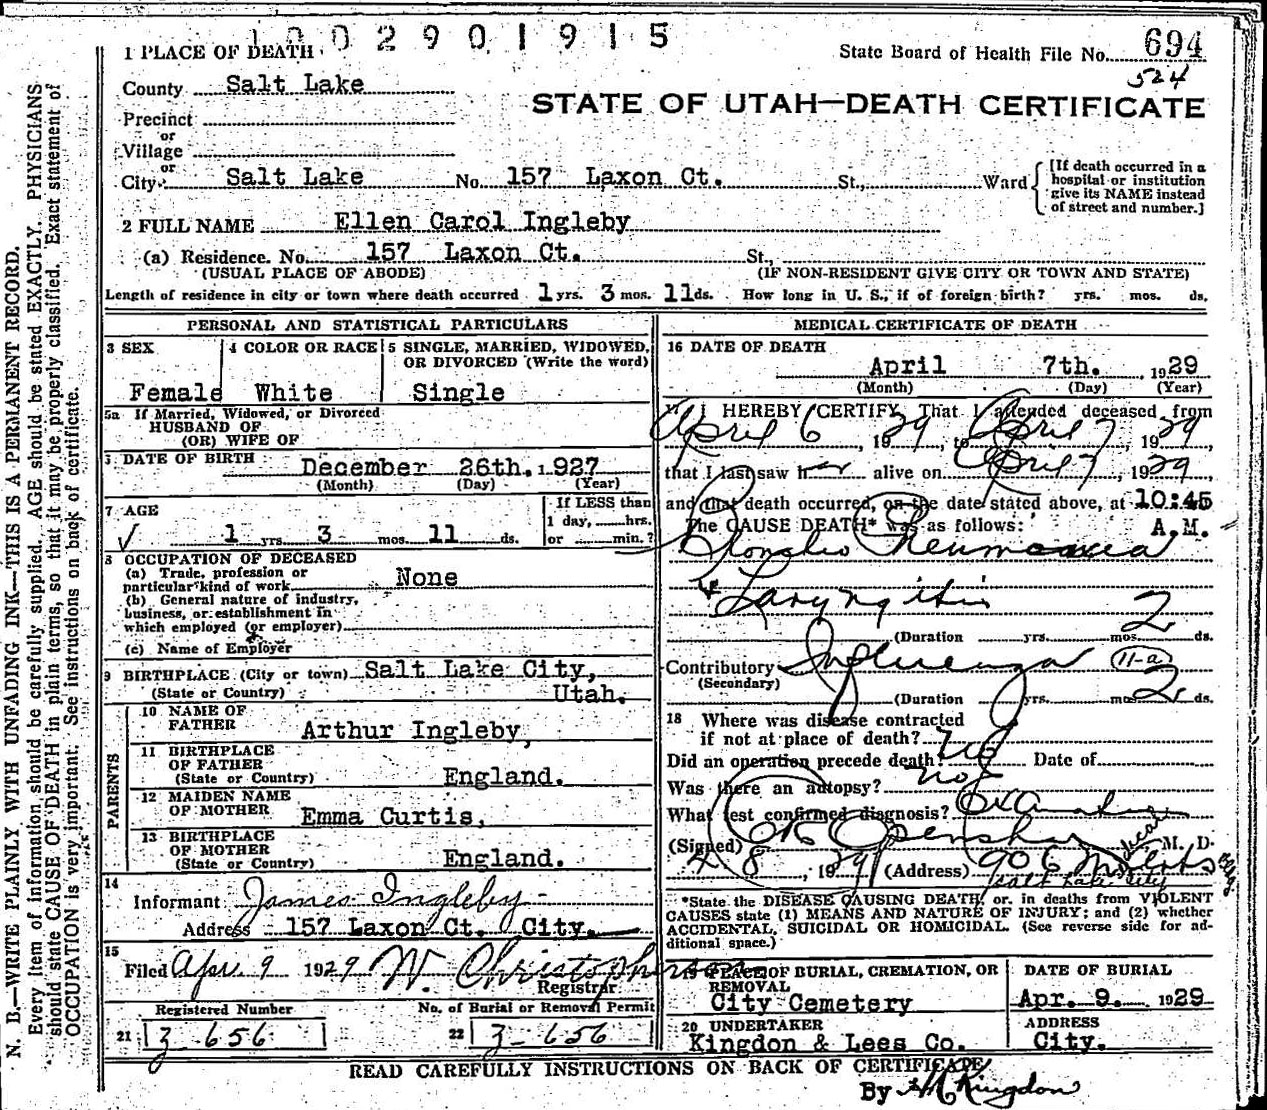 1002901915
1 PLACE OF DEATH
State Board of Health File No. 694
524
County Salt Lake
STATE OF UTAH—DEATH CERTIFICATE
Precinct
or
Village
or
City Salt Lake No. 157 Laxon Ct. St., Ward
[If death occurred in a hospital or institution give its NAME instead of street and number.]
2 FULL NAME Ellen Carol Ingleby
(a) Residence. No. 157 Laxon Ct. St.,
(USUAL PLACE OF ABODE) (IF NON-RESIDENT GIVE CITY OR TOWN AND STATE)
Length of residence in city or town where death occurred 1 yrs. 3 mos. 11 ds. How long in U. S., if of foreign birth? yrs. mos. ds.
PERSONAL AND STATISTICAL PARTICULARS
3 SEX 4 COLOR OR RACE 5 SINGLE, MARRIED, WIDOWED,
OR DIVORCED (Write the word)
Female White Single
5a If Married, Widowed, or Divorced
HUSBAND OF
(OR) WIFE OF
DATE OF BIRTH December 26th. 1927
(Month) (Day) (Year)
7 AGE
If LESS than
1 day, hrs.
or min.?
1 yrs. 3 mos. 11 ds.
8 OCCUPATION OF DECEASED
(a) Trade, profession or
particular kind of work None
(b) General nature of industry,
business, or establishment in
which employed (or employer)
(c) Name of Employer
9 BIRTHPLACE (City or town) Salt Lake City,
(State or Country) Utah.
PARENTS
10 NAME OF
FATHER Arthur Ingleby,
11 BIRTHPLACE
OF FATHER
(State or Country) England.
12 MAIDEN NAME
OF MOTHER Emma Curtis,
13 BIRTHPLACE
OF MOTHER
(State or Country) England.
14
Informant James Ingleby
Address 157 Laxon Ct. City.
15
Filed Apr. 9 1929 W. Christopherson
Registrar
Registered Number No. of Burial or Removal Permit
21 3-656 22 3-656
MEDICAL CERTIFICATE OF DEATH
16 DATE OF DEATH
April 7th. 1929
(Month) (Day) (Year)
I HEREBY CERTIFY, That I attended deceased from
April 6, 1929, to April 7, 1929
that I last saw her alive on April 7, 1929
and that death occurred, on the date stated above, at 10:45
The CAUSE DEATH* was as follows: A.M.
Broncho Pneumonia
+ Laryngitis
(Duration yrs. mos. 2 ds.
Contributory Influenza 11-a
(Secondary)
(Duration yrs. mos. 2 ds.
18 Where was disease contracted
if not at place of death?
Did an operation precede death? No Date of
Was there an autopsy? no
What test confirmed diagnosis?
(Signed) Openshaw M. D.
4-8, 1929 (Address) 906 Medical Arts Bldg
Salt Lake City
*State the DISEASE CAUSING DEATH, or, in deaths from VIOLENT
CAUSES state (1) MEANS AND NATURE OF INJURY; and (2) whether
ACCIDENTAL, SUICIDAL OR HOMICIDAL. (See reverse side for ad-
ditional space.)
19 PLACE OF BURIAL, CREMATION, OR
REMOVAL
City Cemetery
DATE OF BURIAL
Apr. 9. 1929
20 UNDERTAKER
Kingdon & Lees Co.
ADDRESS
City.
READ CAREFULLY INSTRUCTIONS ON BACK OF CERTIFICATE
By H C Kingdon
N. B.—WRITE PLAINLY WITH UNFADING INK—THIS IS A PERMANENT RECORD.
Every item of information should be carefully supplied. AGE should be stated EXACTLY. PHYSICIANS
should state CAUSE OF DEATH in plain terms, so that it may be properly classified. Exact statement of
OCCUPATION is very important. See instructions on back of certificate.